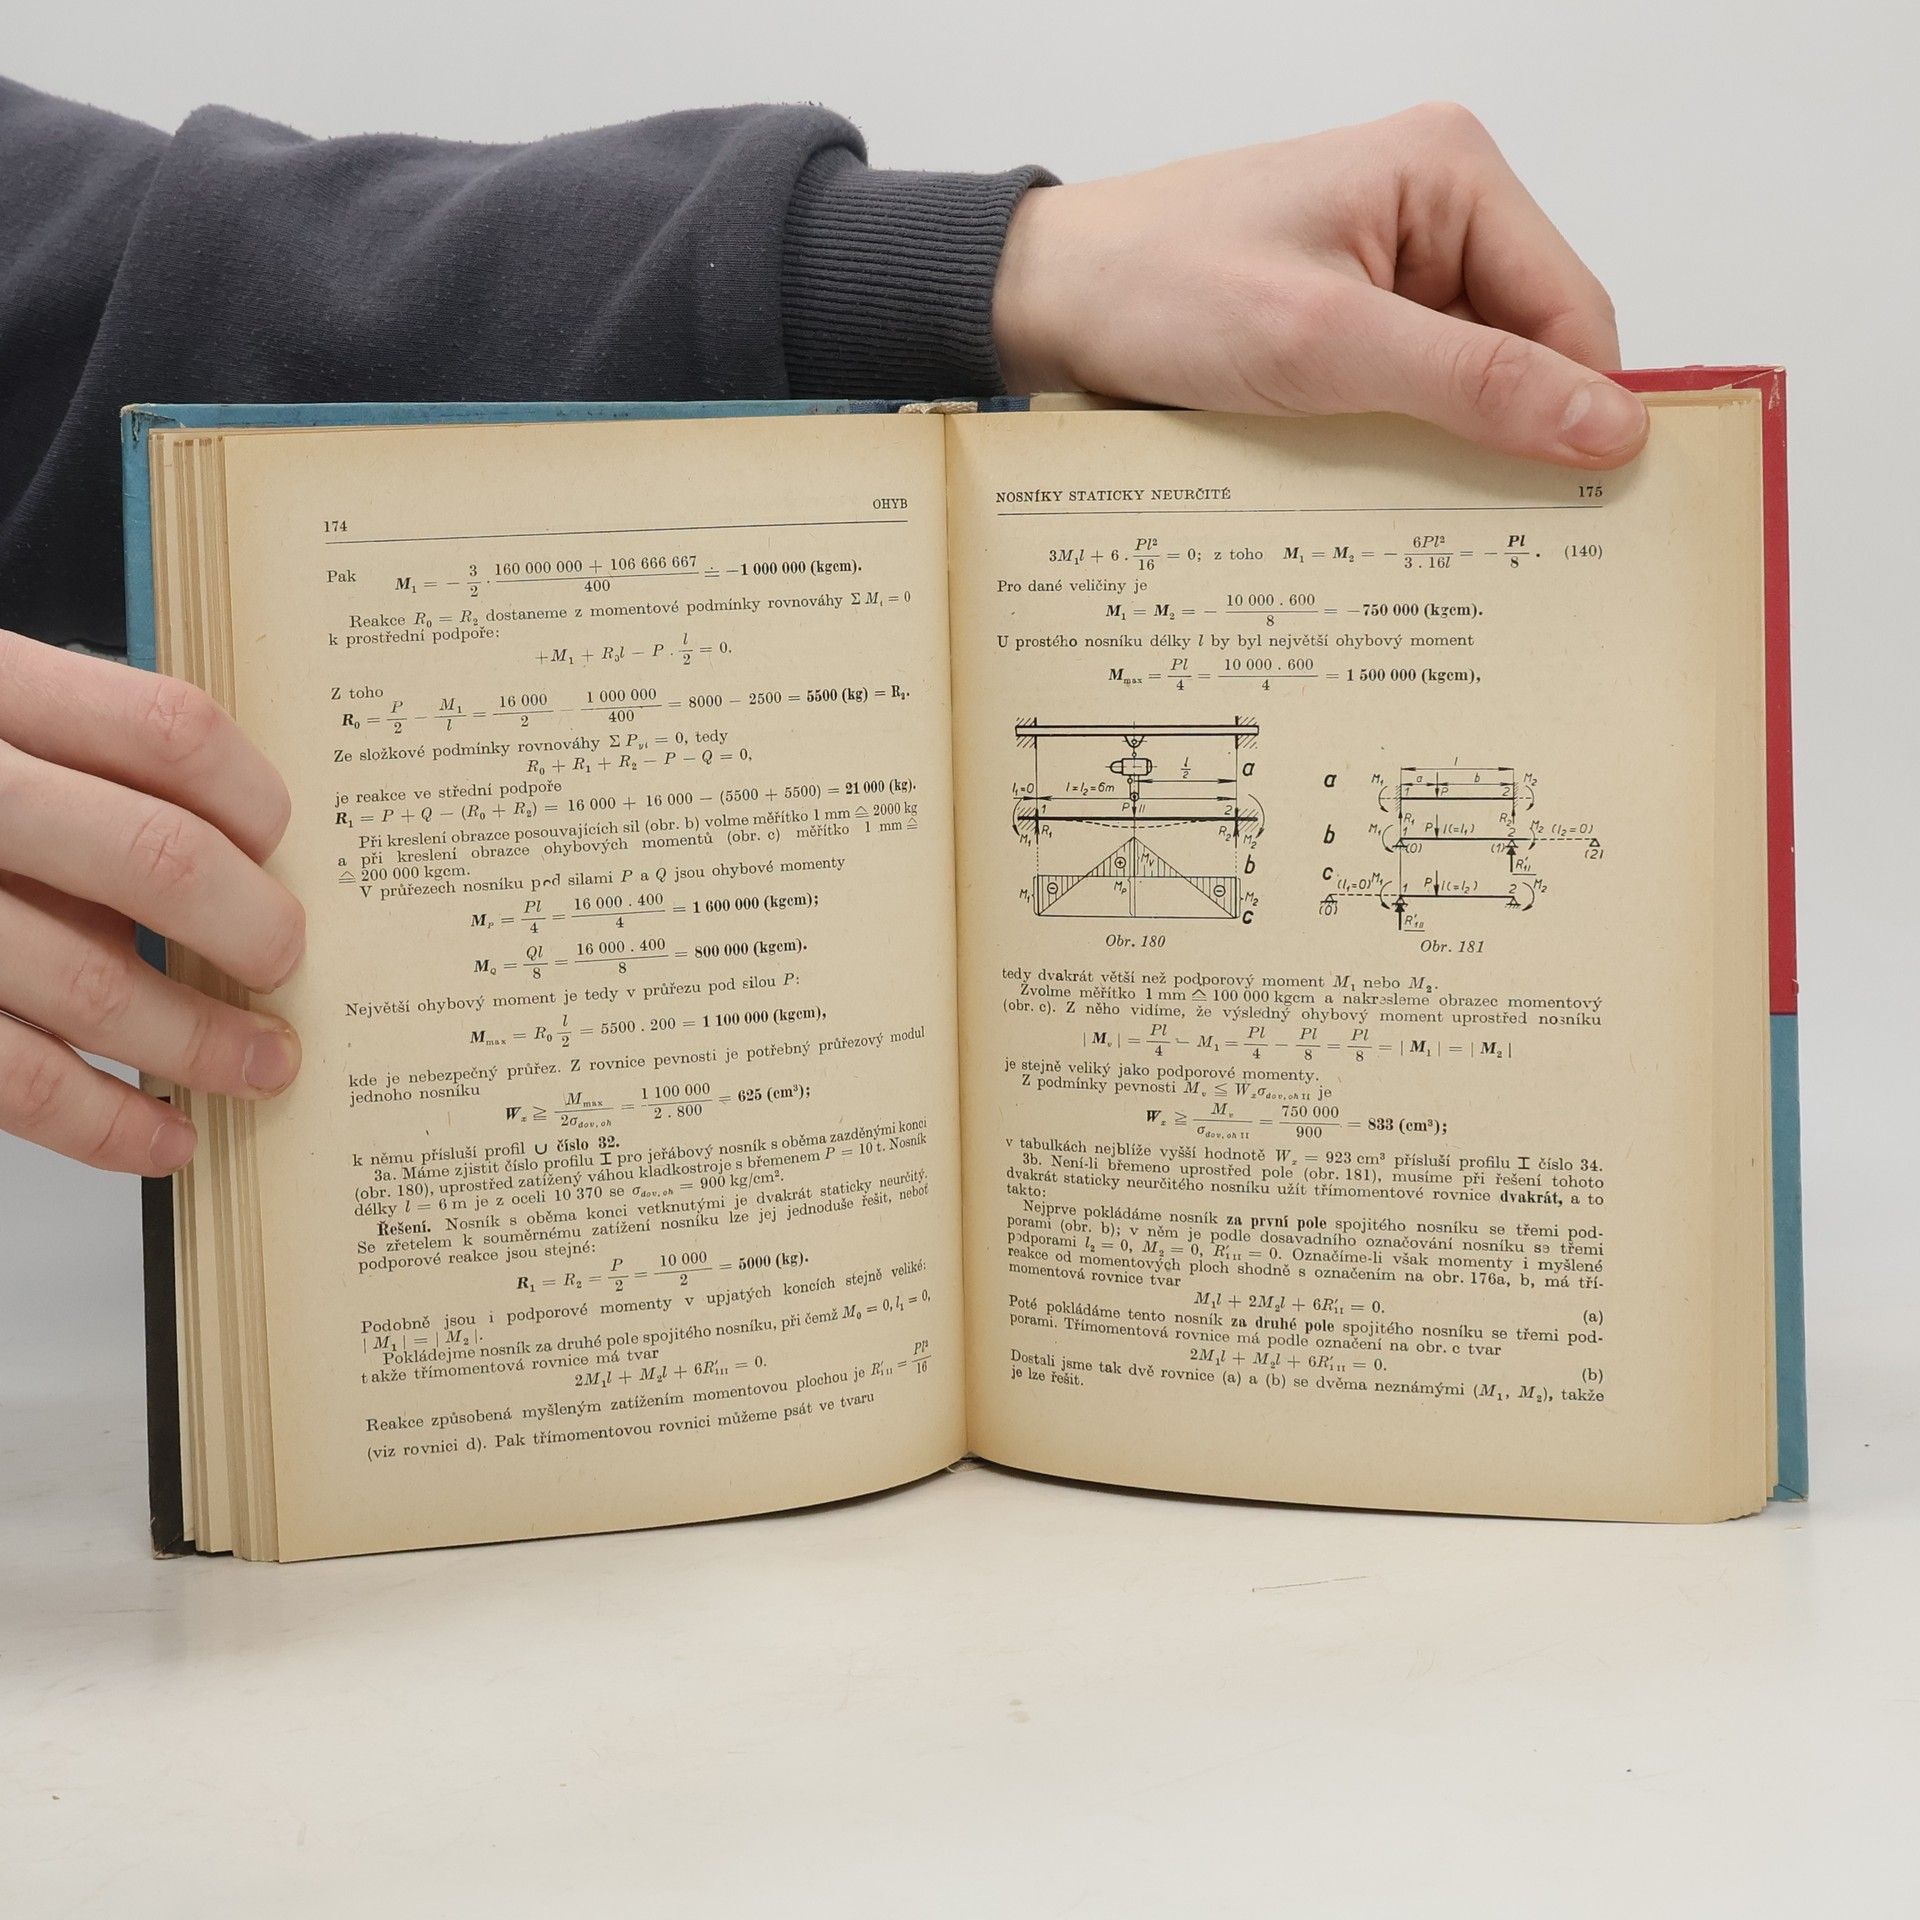 174 OHYB
Pak M₁ = − 3/2 · (160 000 000 + 106 666 667)/400 ≐ −1 000 000 (kgcm).
Reakce R₀ = R₂ dostaneme z momentové podmínky rovnováhy Σ Mᵢ = 0
k prostřední podpoře:
+M₁ + R₀l − P · l/2 = 0.
Z toho
R₀ = P/2 − M₁/l = 16 000/2 − 1 000 000/400 = 8000 − 2500 = 5500 (kg) = R₂.
Ze složkové podmínky rovnováhy Σ P_yi = 0, tedy
R₀ + R₁ + R₂ − P − Q = 0,
je reakce ve střední podpoře
R₁ = P + Q − (R₀ + R₂) = 16 000 + 16 000 − (5500 + 5500) = 21 000 (kg).
Při kreslení obrazce posouvajících sil (obr. b) volme měřítko 1 mm ≙ 2000 kg
a při kreslení obrazce ohybových momentů (obr. c) měřítko 1 mm ≙
≙ 200 000 kgcm.
V průřezech nosníku pod silami P a Q jsou ohybové momenty
M_P = Pl/4 = 16 000 . 400/4 = 1 600 000 (kgcm);
M_Q = Ql/8 = 16 000 . 400/8 = 800 000 (kgcm).
Největší ohybový moment je tedy v průřezu pod silou P:
M_max = R₀ l/2 = 5500 . 200 = 1 100 000 (kgcm),
kde je nebezpečný průřez. Z rovnice pevnosti je potřebný průřezový modul
jednoho nosníku
W_x ≧ M_max/2σ_dov, oh = 1 100 000/2 . 800 = 625 (cm³);
k němu přísluší profil ∪ číslo 32.
3a. Máme zjistit číslo profilu I pro jeřábový nosník s oběma zazděnými konci
(obr. 180), uprostřed zatížený váhou kladkostroje s břemenem P = 10 t. Nosník
délky l = 6 m je z oceli 10 370 se σ_dov, oh = 900 kg/cm².
Řešení. Nosník s oběma konci vetknutými je dvakrát staticky neurčitý.
Se zřetelem k souměrnému zatížení nosníku lze jej jednoduše řešit, neboť
podporové reakce jsou stejné:
R₁ = R₂ = P/2 = 10 000/2 = 5000 (kg).
Podobně jsou i podporové momenty v upjatých koncích stejně veliké:
| M₁ | = | M₂ |.
Pokládejme nosník za druhé pole spojitého nosníku, při čemž M₀ = 0, l₁ = 0,
takže třímomentová rovnice má tvar
2M₁l + M₂l + 6R′₁II = 0.
Reakce způsobená myšleným zatížením momentovou plochou je R′₁II = Pl²/16
(viz rovnici d). Pak třímomentovou rovnici můžeme psát ve tvaru
NOSNÍKY STATICKY NEURČITÉ 175
3M₁l + 6 . Pl²/16 = 0; z toho M₁ = M₂ = − 6Pl²/3 . 16l = − Pl/8 . (140)
Pro dané veličiny je
M₁ = M₂ = − 10 000 . 600/8 = −750 000 (kgcm).
U prostého nosníku délky l by byl největší ohybový moment
M_max = Pl/4 = 10 000 . 600/4 = 1 500 000 (kgcm),
l/2 a
l₁=0 l=l₂=6m
1 P II 2
M₁ R₁ R₂ M₂
b
M₁ ⊖ ⊕ M_v M_P ⊖ M₂
c
Obr. 180
l
a M₁ a b M₂
1 P 2
R₁ R₂
b M₁ 1 P l(=l₁) 2 M₂ (l₂=0)
(0) (1) (2)
R′₁I
c (l₁=0) M₁ 1 P l(=l₂) 2 M₂
(0)
R′₁II
Obr. 181
tedy dvakrát větší než podporový moment M₁ nebo M₂.
Zvolme měřítko 1 mm ≙ 100 000 kgcm a nakresleme obrazec momentový
(obr. c). Z něho vidíme, že výsledný ohybový moment uprostřed nosníku
| M_v | = Pl/4 − M₁ = Pl/4 − Pl/8 = Pl/8 = | M₁ | = | M₂ |
je stejně veliký jako podporové momenty.
Z podmínky pevnosti M_v ≦ W_xσ_dov, oh II je
W_x ≧ M_v/σ_dov, oh II = 750 000/900 = 833 (cm³);
v tabulkách nejblíže vyšší hodnotě W_x = 923 cm³ přísluší profilu I číslo 34.
3b. Není-li břemeno uprostřed pole (obr. 181), musíme při řešení tohoto
dvakrát staticky neurčitého nosníku užít třímomentové rovnice dvakrát, a to
takto:
Nejprve pokládáme nosník za první pole spojitého nosníku se třemi pod-
porami (obr. b); v něm je podle dosavadního označování nosníku se třemi
podporami l₂ = 0, M₂ = 0, R′₁II = 0. Označíme-li však momenty i myšlené
reakce od momentových ploch shodně s označením na obr. 176a, b, má tří-
momentová rovnice tvar
M₁l + 2M₂l + 6R′₁I = 0. (a)
Poté pokládáme tento nosník za druhé pole spojitého nosníku se třemi pod-
porami. Třímomentová rovnice má podle označení na obr. c tvar
2M₁l + M₂l + 6R′₁II = 0. (b)
Dostali jsme tak dvě rovnice (a) a (b) se dvěma neznámými (M₁, M₂), takže
je lze řešit.